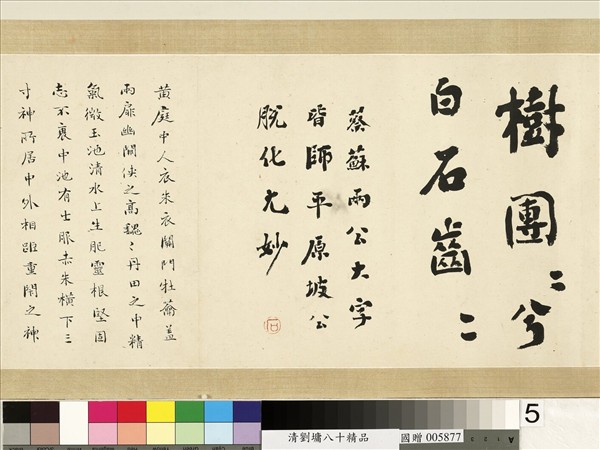 樹團〻兮
白石齒〻
蔡蘇兩公大字
皆師平原坡公
脫化尤妙
黃庭中人衣朱衣關門牡蘥蓋
兩扉幽闕俠之高巍〻丹田之中精
氣微玉池清水上生肥靈根堅固
志不衰中池有士服赤朱橫下三
寸神所居中外相距重閉之神
5
清劉墉八十精品
國贈 005877
A